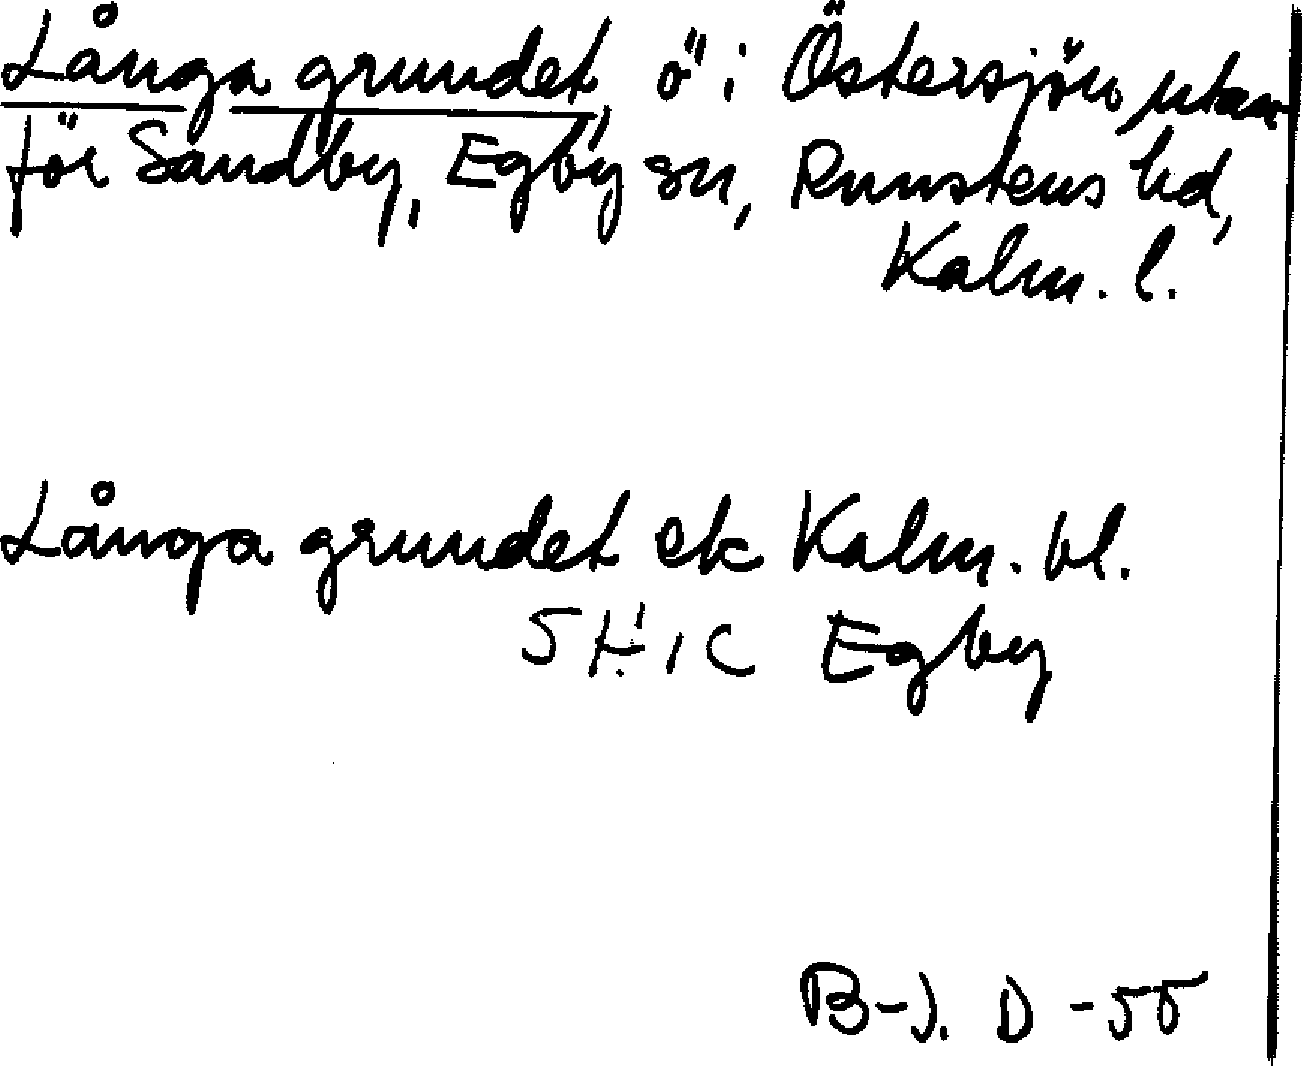 Långa grundet, ö i Östersjön utan-
för Sandby, Egby sn, Runstens hd,
Kalm. l.
Långa grundet ek Kalm. bl.
5 H 1 C Egby
B-J. D -55